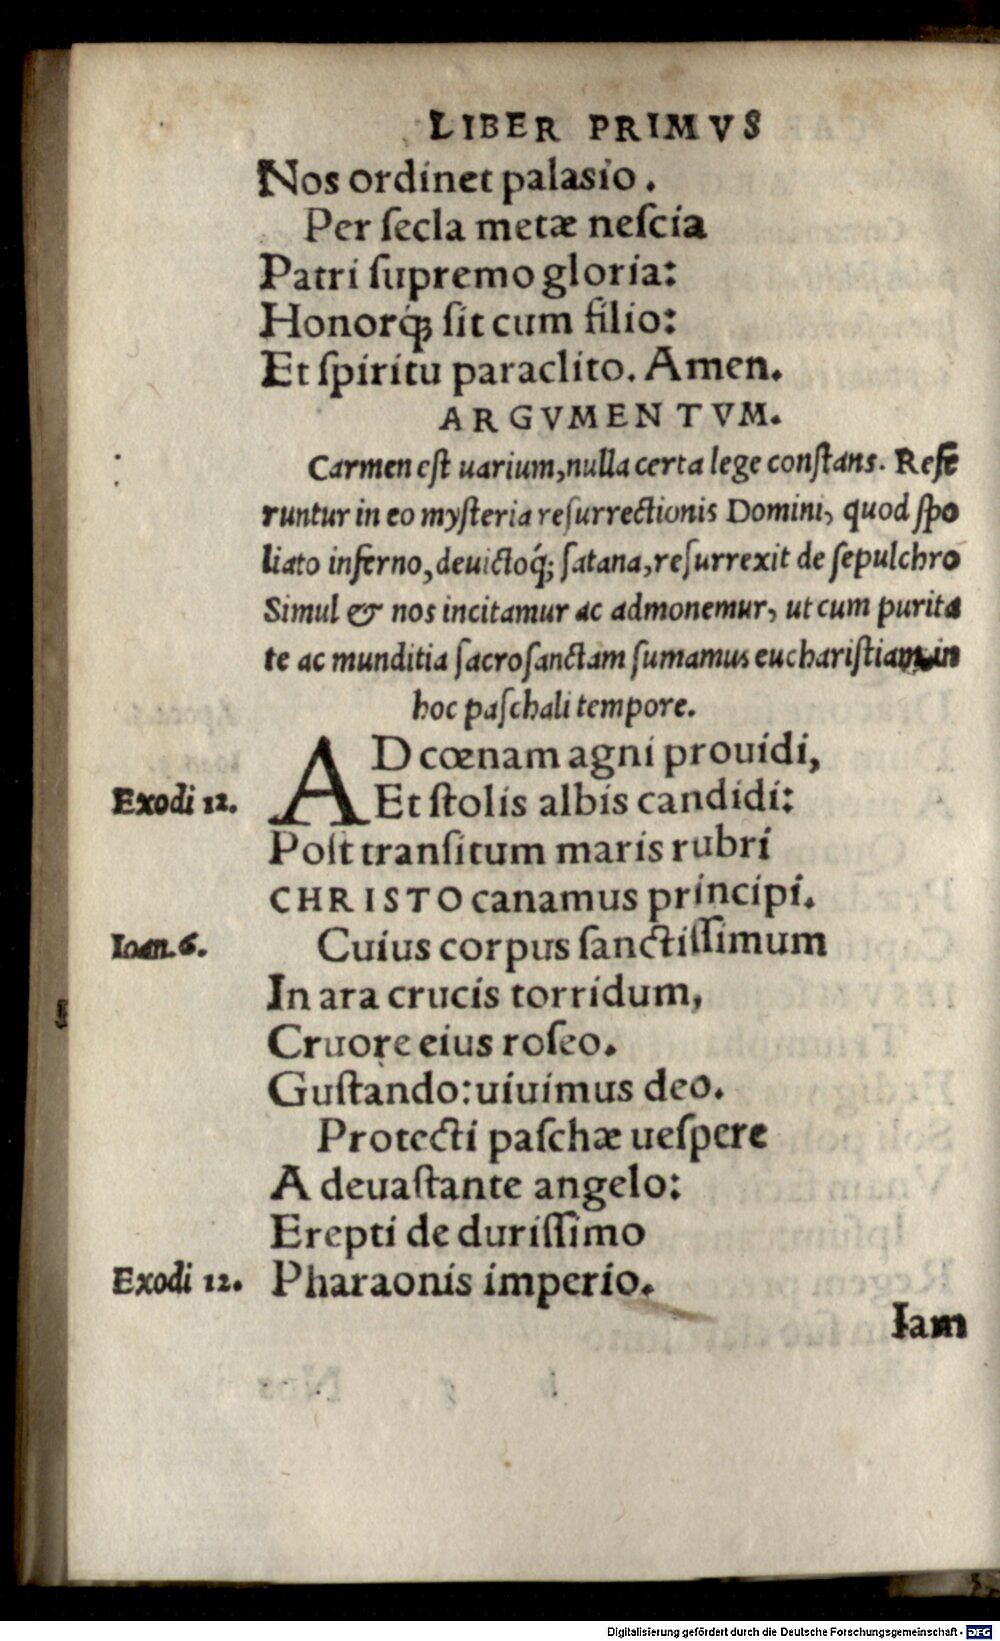 LIBER PRIMVS
Nos ordinet palasio.
Per ſecla metæ neſcia
Patri ſupremo gloria:
Honorq́ꝫ ſit cum filio:
Et ſpiritu paraclito. Amen.
ARGVMENTVM.
Carmen eſt uarium, nulla certa lege conſtans. Refe
runtur in eo myſteria reſurrectionis Domini, quod ſpo
liato inferno, deuictoq́; ſatana, reſurrexit de ſepulchro
Simul & nos incitamur ac admonemur, ut cum purita
te ac munditia ſacroſanctam ſumamus euchariſtiam in
hoc paſchali tempore.
AD cœnam agni prouidi,
Exodi 12. Et ſtolis albis candidi:
Poſt tranſitum maris rubri
CHRISTO canamus principi.
Ioan. 6. Cuius corpus ſanctiſſimum
In ara crucis torridum,
Cruore eius roſeo.
Guſtando: uiuimus deo.
Protecti paſchæ ueſpere
A deuaſtante angelo:
Erepti de duriſſimo
Exodi 12. Pharaonis imperio.
Iam
Digitalisierung gefördert durch die Deutsche Forschungsgemeinschaft - DFG